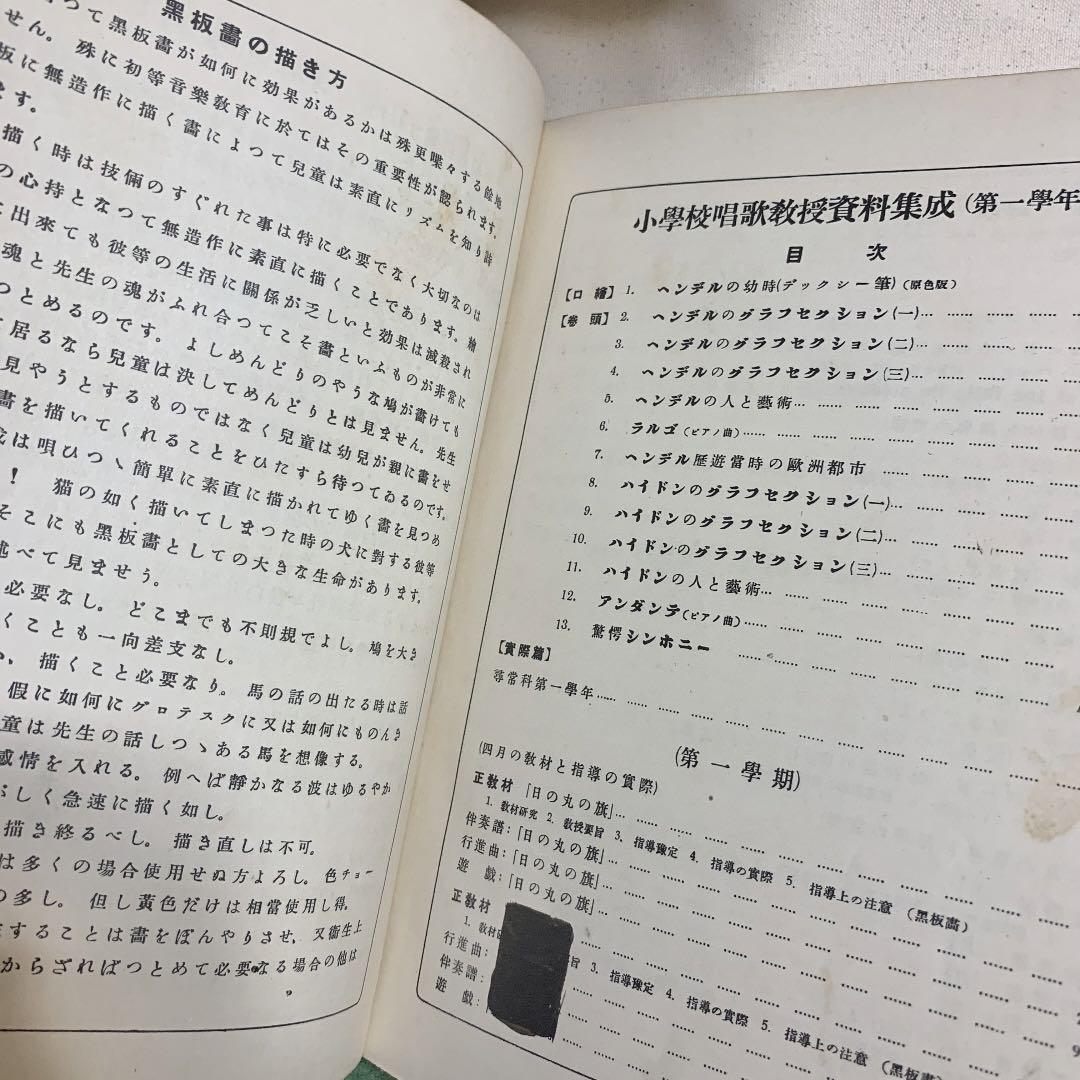 黑板畫の描き方
つて黑板畫が如何に効果があるかは殊更喋々する餘地
せん。殊に初等音樂敎育に於てはその重要性が認られます。
板に無造作に描く畫によつて兒童は素直にリズムを知り詩
ます。
描く時は技倆のすぐれた事は特に必要でなく大切なのは
の心持となつて無造作に素直に描くことであります。繪
出來ても彼等の生活に關係が乏しいと効果は減殺され
魂と先生の魂がふれ合つてこそ畫といふものが非常に
つとめるのです。よしめんどりのやうな鳩が書けても
居るなら兒童は決してめんどりとは見ません。先生
見やうとするものではなく兒童は幼兒が親に畫をせ
畫を描いてくれることをひたすら待つてゐるのです。
は唄ひつゝ簡單に素直に描かれてゆく畫を見つめ
! 猫の如く描いてしまつた時の犬に對する彼等
そこにも黑板畫としての大きな生命があります。
述べて見ませう。
必要なし。どこまでも不則規でよし。鳩を大き
くことも一向差支なし。
描くこと必要なり。馬の話の出たる時は話
假に如何にグロテスクに又は如何にものんき
童は先生の話しつゝある馬を想像する。
感情を入れる。例へば靜かなる波はゆるやか
しく急速に描く如し。
描き終るべし。描き直しは不可。
は多くの場合使用せぬ方よろし。色チョー
の多し。但し黃色だけは相當使用し得。
することは畫をぼんやりさせ、又衞生上
からざればつとめて必要なる場合の他は
小學校唱歌敎授資料集成(第一學年
目 次
【口繪】 1. ヘンデルの幼時(デックシー筆)(原色版)
【卷頭】 2. ヘンデルのグラフセクション(一)
3. ヘンデルのグラフセクション(二)
4. ヘンデルのグラフセクション(三)
5. ヘンデルの人と藝術
6. ラルゴ(ピアノ曲)
7. ヘンデル歷遊當時の歐洲都市
8. ハイドンのグラフセクション(一)
9. ハイドンのグラフセクション(二)
10. ハイドンのグラフセクション(三)
11. ハイドンの人と藝術
12. アンダンテ(ピアノ曲)
13. 驚愕シンホニー
【實際篇】
尋常科第一學年
(第一學期)
(四月の敎材と指導の實際)
正敎材 「日の丸の旗」
1. 敎材硏究 2. 敎授要旨 3. 指導豫定 4. 指導の實際 5. 指導上の注意 (黑板畫)
伴奏譜:「日の丸の旗」
行進曲:「日の丸の旗」
遊 戲:「日の丸の旗」
正敎材
1. 敎材 旨 3. 指導豫定 4. 指導の實際 5. 指導上の注意 (黑板畫)
行進曲:
伴奏譜:
遊 戲:「